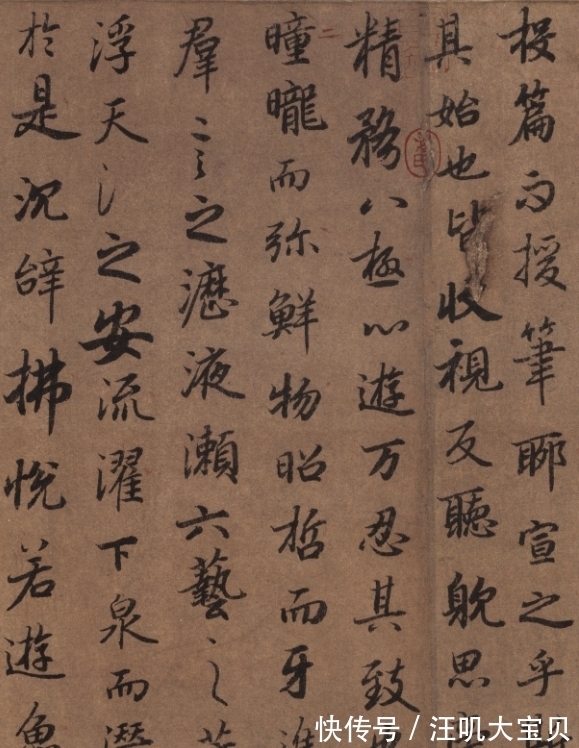 投篇而援筆聊宣之乎
其始也皆收視反聽躭思
精務八極心遊万忍其致
曈曨而弥鮮物昭晢而牙進
羣言之瀝液瀨六藝之芳
浮天淵之安流濯下泉而潛
於是沉辭拂悅若遊魚
快传号／汪叽大宝贝